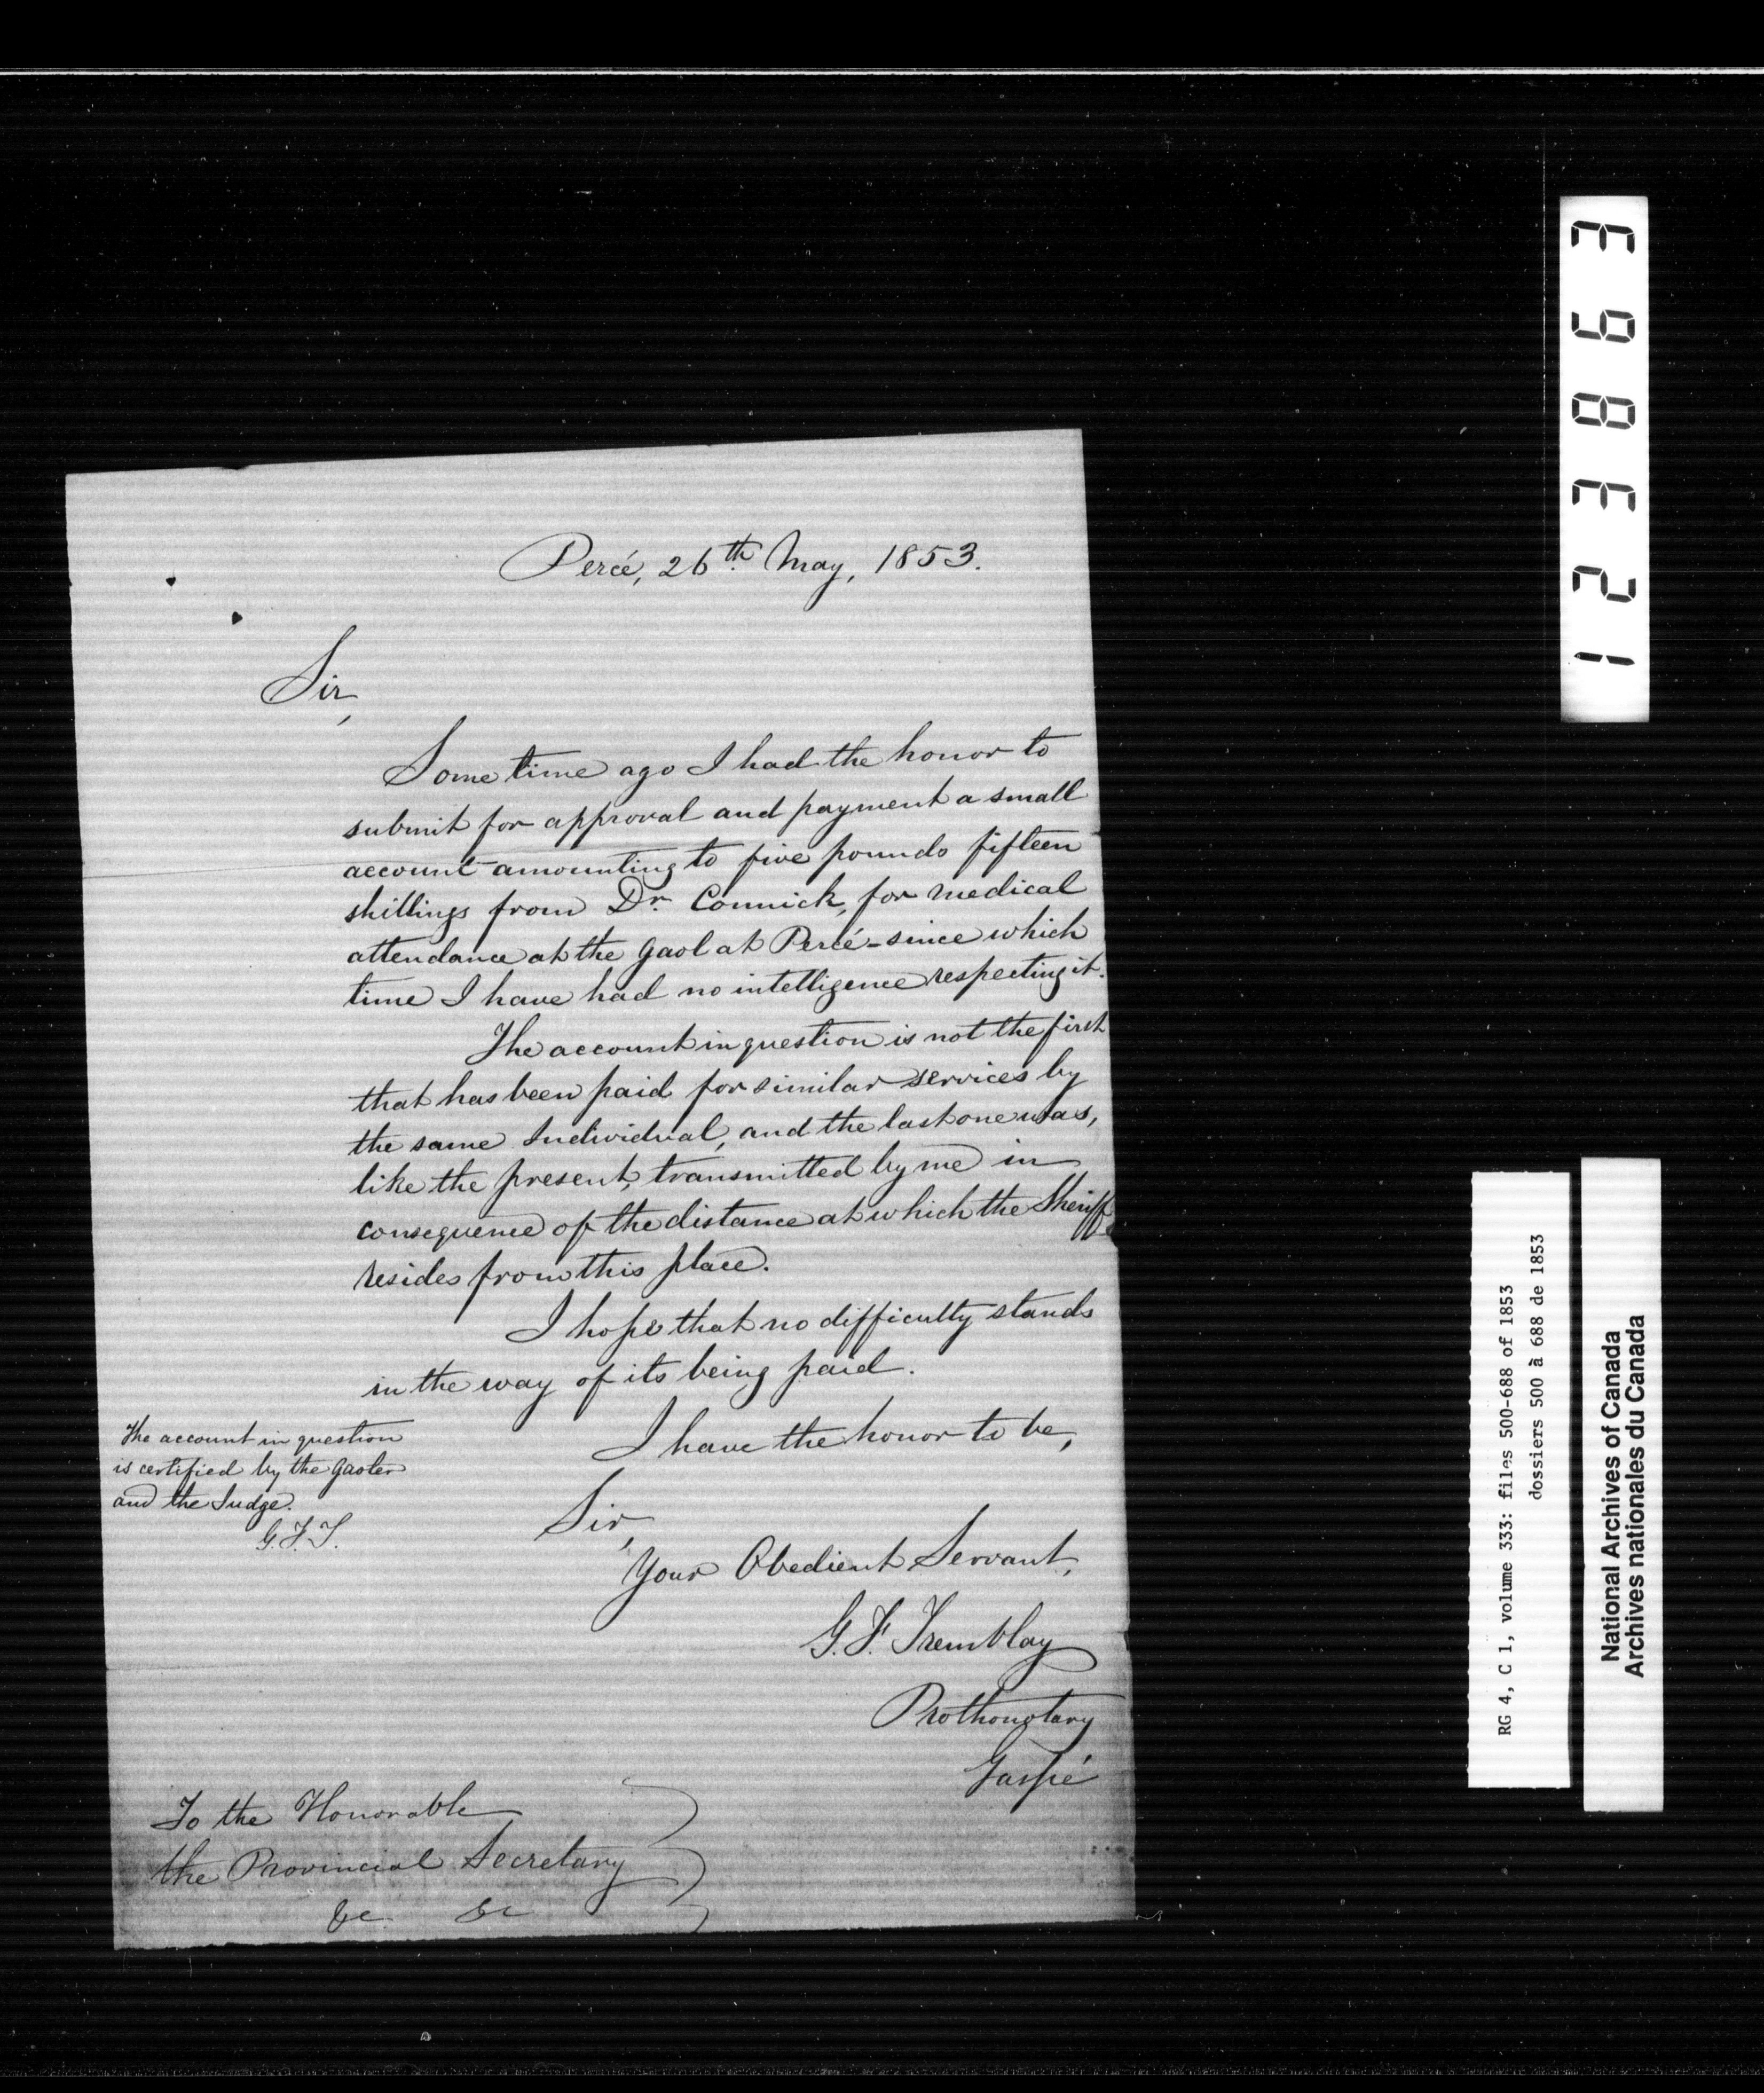 Percé, 26th May, 1853.
Sir,
Some time ago I had the honor to
submit for approval and payment a small
account amounting to five pounds fifteen
shillings from Dr. Connick, for medical
attendance at the Gaol at Percé - since which
time I have had no intelligence respecting it.
The account in question is not the first
that has been paid for similar services by
the same Individual, and the last one was,
like the present, transmitted by me in
consequence of the distance at which the Sheriff
resides from this place.
I hope that no difficulty stands
in the way of its being paid.
I have the honor to be,
Sir,
Your Obedient Servant,
G. F. Tremblay
Prothonotary
Gaspé
The account in question
is certified by the Gaoler
and the Judge.
G.F.T.
To the Honorable
the Provincial Secretary
&c. &c
123863
RG 4, C 1, volume 333: files 500-688 of 1853
dossiers 500 à 688 de 1853
National Archives of Canada
Archives nationales du Canada